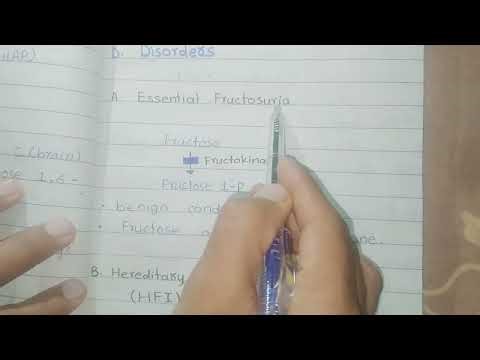 HAP)
D. Disorders
A. Essential Fructosuria
Fructose
Fructokina
(brain)
ose 1,6-
Fructose 1-P
• benign cond
• Fructose ne.
B. Hereditary
(HFI)